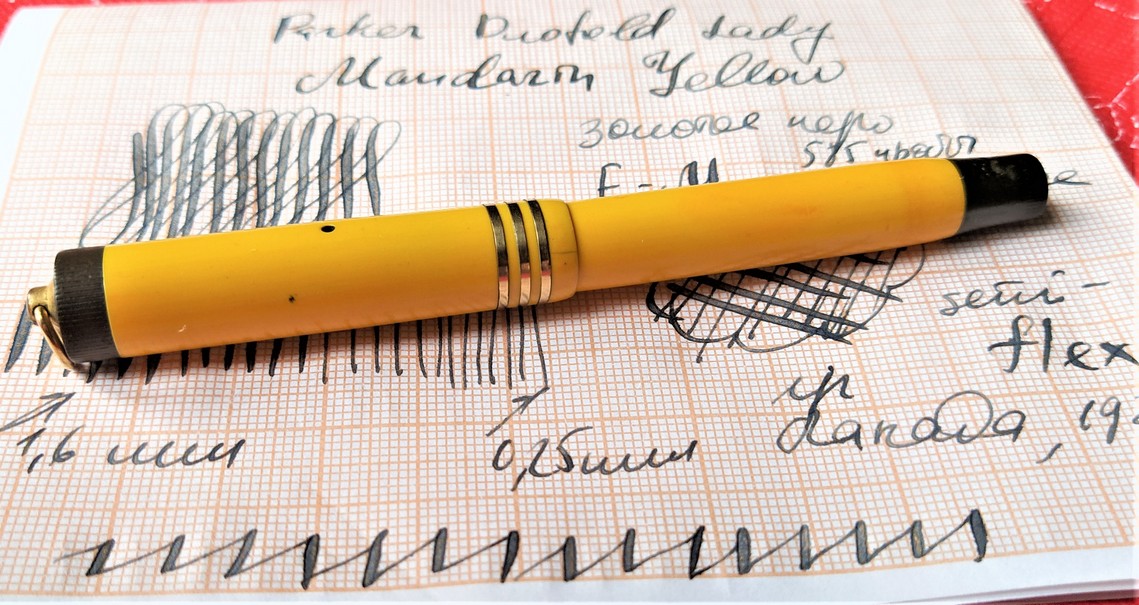 Parker Duofold Lady
Mandarin Yellow
золотое перо
585 пробы
F - M
semi-
flex
1,6 мм
0,25мм
пр
Канада, 19